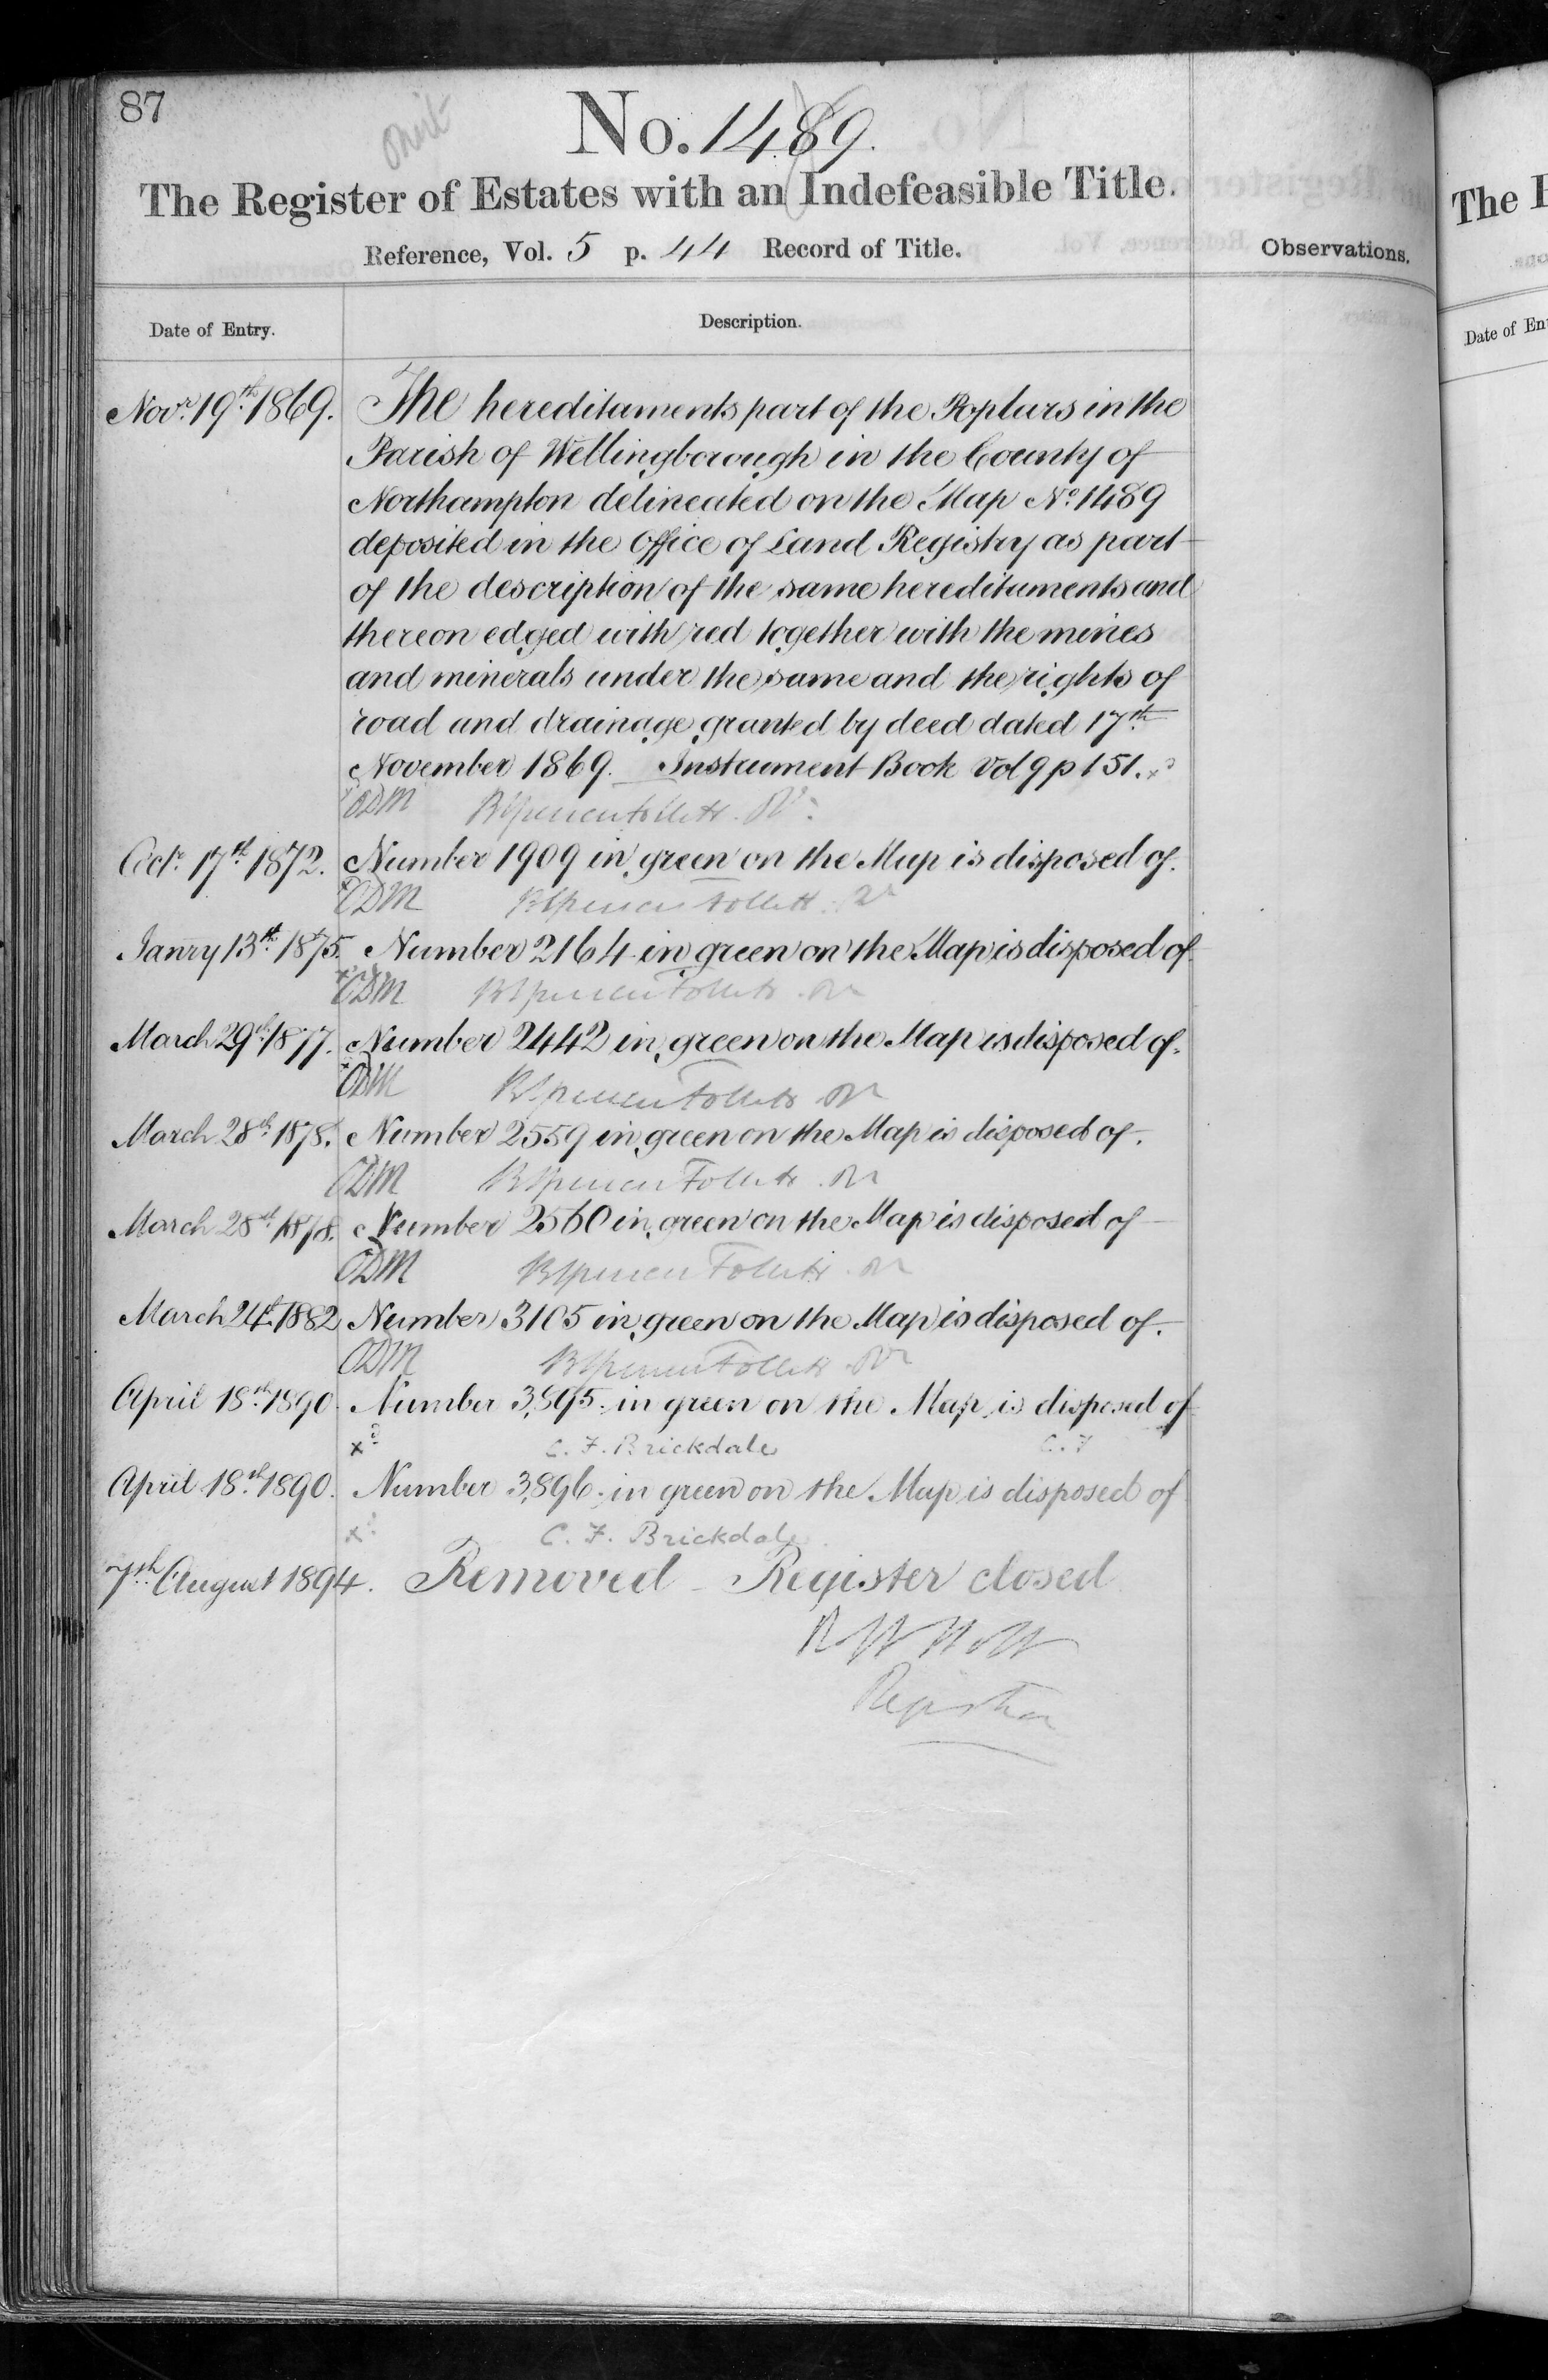 87
Omit
No. 1489.
The Register of Estates with an Indefeasible Title.
Reference, Vol. 5 p. 44 Record of Title.
Observations.
Date of Entry.
Description.
Novr. 19th. 1869. The hereditaments part of the Poplars in the
Parish of Wellingborough in the County of
Northampton delineated on the Map No. 1489
deposited in the Office of Land Registry as part
of the description of the same hereditaments and
thereon edged with red together with the mines
and minerals under the same and the rights of
road and drainage granted by deed dated 17th
November 1869. Instrument Book Vol 9 p 151. xd
ODM BSpencer Follett. Rr.
Octr. 17th. 1872. Number 1909 in green on the Map is disposed of.
ODM BSpencer Follett. Rr
Janry 13th. 1875. Number 2164 in green on the Map is disposed of.
ODM BSpencer Follett. Rr
March 29th. 1877. Number 2442 in green on the Map is disposed of.
ODM BSpencer Follett Rr
March 28th. 1878. Number 2559 in green on the Map is disposed of.
ODM BSpencer Follett. Rr
March 28th. 1878. Number 2560 in green on the Map is disposed of
ODM BSpencer Follett. Rr
March 24th. 1882 Number 3105 in green on the Map is disposed of.
ODM BSpencer Follett. Rr
April 18th. 1890. Number 3,895. in green on the Map is disposed of
xd C. F. Brickdale C. F
April 18th. 1890. Number 3,896. in green on the Map is disposed of
xd. C. F. Brickdale
7th. August 1894. Removed - Register closed
Registrar
The
Date of En